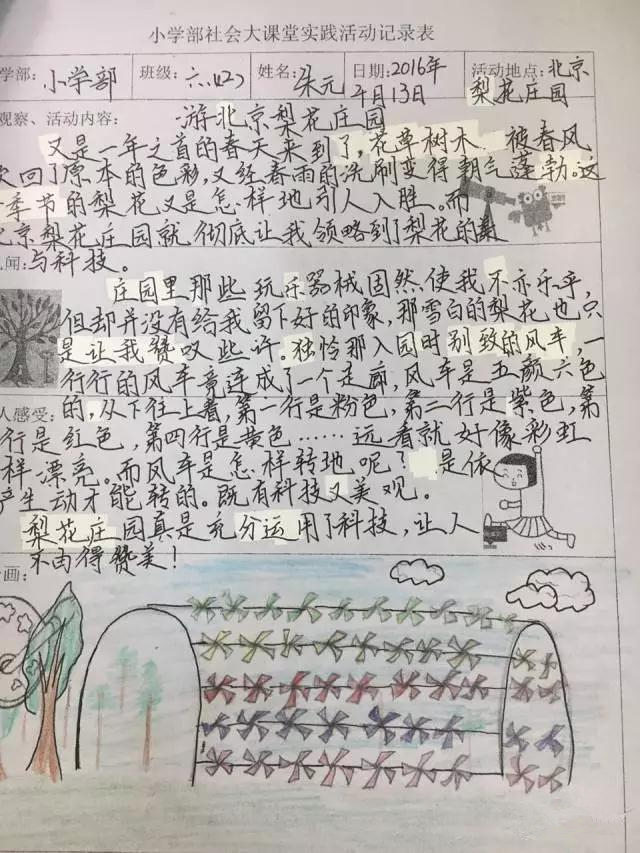 小学部社会大课堂实践活动记录表
学部：小学部 班级：六.(2) 姓名：朱元 日期：2016年4月13日 活动地点：北京梨花庄园
观察、活动内容： 游北京梨花庄园
又是一年之首的春天来到了，花草树木 被春风
回了原本的色彩，又经春雨的洗刷变得朝气蓬勃。这
季节的梨花又是怎样地引人入胜。而
北京梨花庄园就彻底让我领略到了梨花的
闻：与科技。
庄园里那些玩乐器械固然使我不亦乐乎，
但却并没有给我留下好的印象，那雪白的梨花也只
是让我赞叹些许。独怜那入园时别致的风车，一
行行的风车竟连成了一个走廊，风车是五颜六色
人感受：的，从下往上看，第一行是粉色，第二行是紫色，第
行是红色，第四行是黄色……远看就好像彩虹
样漂亮。而风车是怎样转地呢？ 是依
产生动才能转的。既有科技又美观。
梨花庄园真是充分运用了科技，让人
不由得赞美！
画：